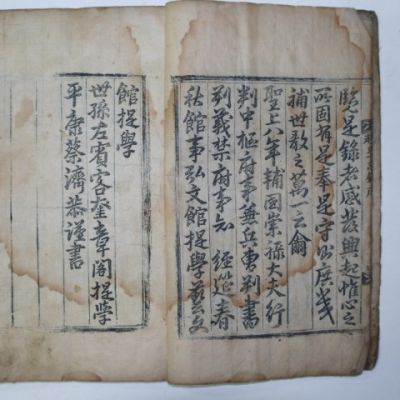 覽是錄者感發興起愼心之
所固有是奉是守以庶幾
補世敎之萬一云爾
聖上八年輔國崇祿大夫行
判中樞府事兼兵曹判書
判義禁府事知 經筵春
秋館事弘文館提學藝文
館提學
世孫左賓客奎章閣提學
平康蔡濟恭謹書